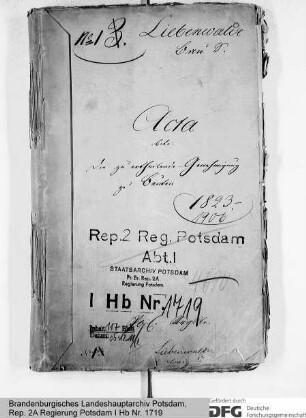 Liebenwalde
Acta
betr.
Die zu ertheilende Genehmigung
zu Bauten
1823-
1900
Rep.2 Reg. Potsdam
Abt.I
STAATSARCHIV POTSDAM
Pr. Br. Rep. 2A
Regierung Potsdam
I Hb Nr. 1719
Liebenwalde
Brandenburgisches Landeshauptarchiv Potsdam,
Rep. 2A Regierung Potsdam I Hb Nr. 1719
Gefördert durch:
DFG Deutsche
Forschungsgemeinschaft